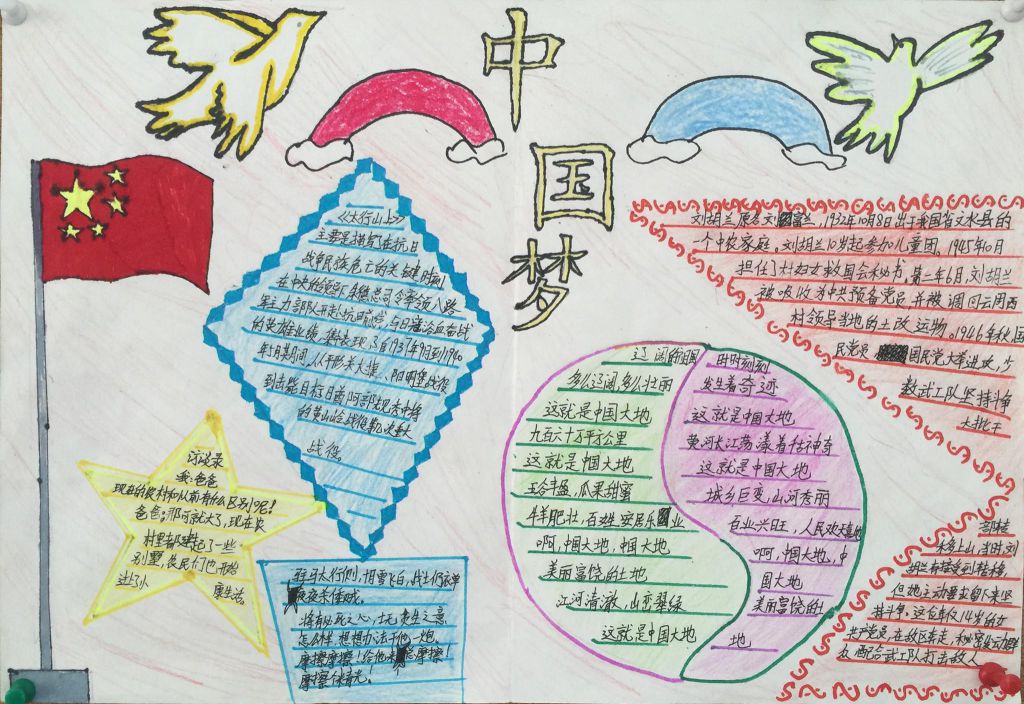 中
国
梦
《太行山上》
主要是描写在抗日
战争民族危亡的关键时刻
在中央的领导下朱德总司令率领八路
军主力部队开赴抗日战场,与日寇浴血奋战
的英雄业绩,集表现了自1937年9月到1940
年5月其间,从平形关大捷、阳明堡战役
到击毙日酋阿部规秀中将
的黄山岭战役等几次重大
战役。
访谈录
我:爸爸
现在的农村和以前有什么区别呢?
爸爸:那可就大了,现在农
村里都建起了一些
别墅,农民们也开始
进入小 康生活。
驻马太行侧,十月雪飞白,战士仍衣单
夜夜杀倭贼。
将有必死之心,士无贪生之意
怎么样,想想办法干他一炮
摩擦摩擦!给他来摩擦!
辽阔的眼
多么辽阔,多么壮丽
这就是中国大地
九百六十万平方公里
这就是中国大地
五谷丰盈,瓜果甜蜜
牛羊肥壮,百姓安居乐业
啊,中国大地,中国大地
美丽富饶的土地
江河清澈,山峦翠绿
这就是中国大地
时时刻刻
发生着奇迹
这就是中国大地
黄河长江荡漾着估神奇
这就是中国大地
城乡巨变,山河秀丽
百业兴旺,人民欢天喜地
啊,中国大地,中
国大地
美丽富饶的土
地
刘胡兰原名刘富兰,1932年10月8日出于我国省文水县的
一个中农家庭。刘胡兰10岁起参加儿童团。1945年10月
担任了村妇女救国会秘书。第二年6月,刘胡兰
被吸收为中共预备党员,并被调回云周西
村领导当地的土改运物。1946年秋,国
民党军国民党大军进攻,少
数武工队坚持斗争
大批干
部转
来多上山,当时,刘
胡兰有接受到转移,
但她主动要求留下来坚
持斗争。这位年仅14岁的女
共产党员,在敌区奔走,秘密发动群
众,配合武工队打击敌人